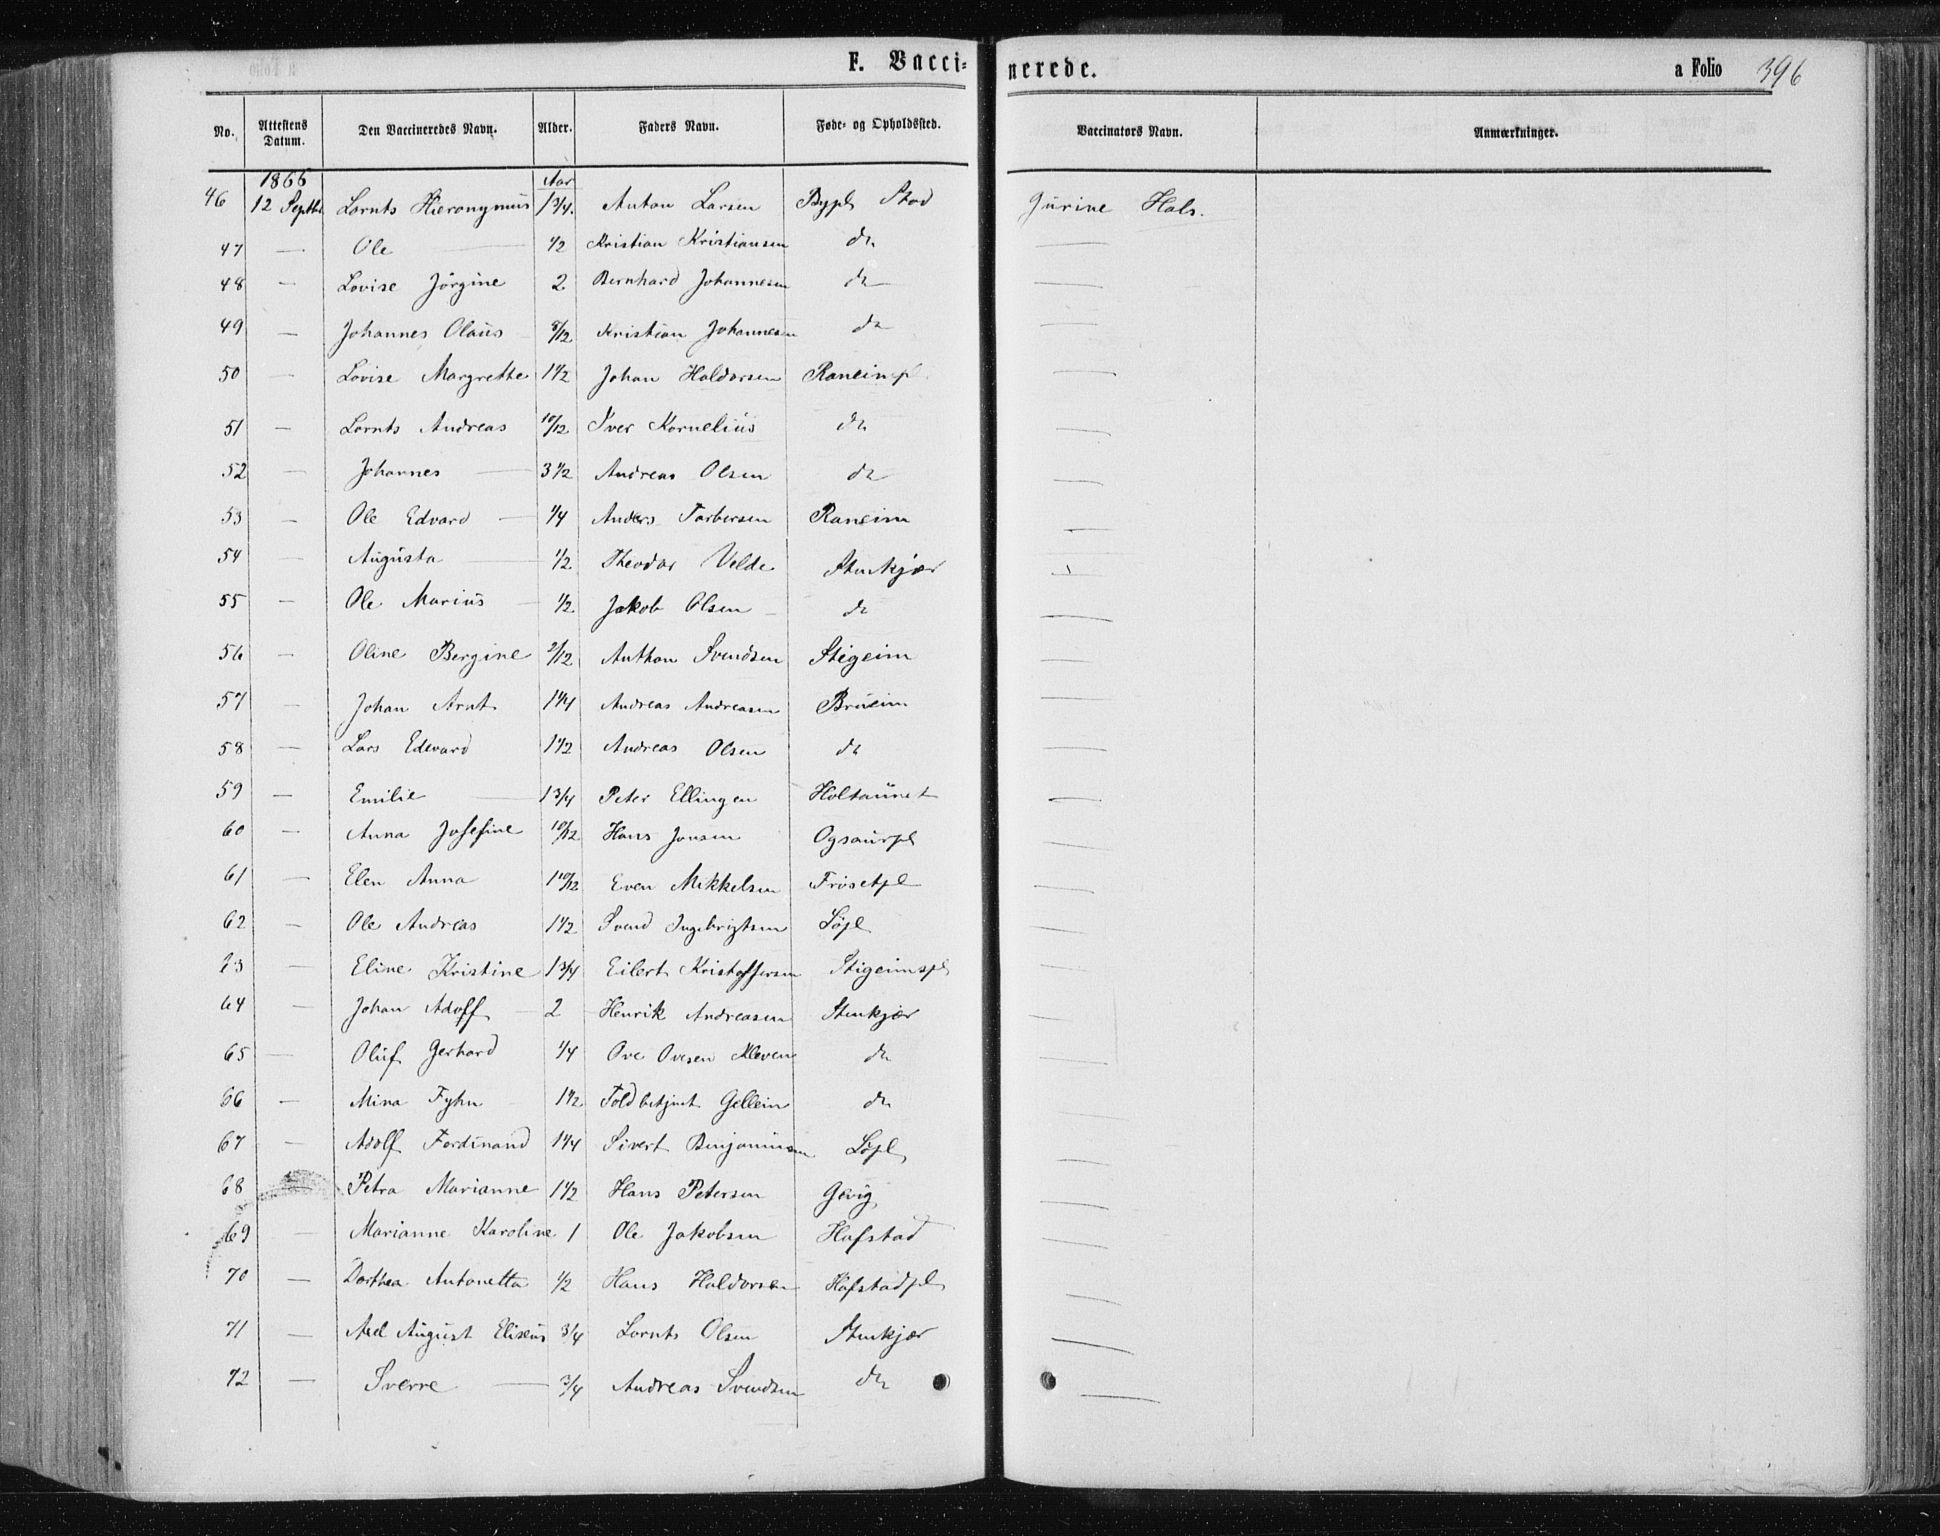 F. Vaccinerede. a Folio 396
No. Attestens Datum. Den Vaccineredes Navn. Alder. Faders Navn. Føde- og Opholdssted. Vaccinators Navn. Anmærkninger.
1866 Aar
46 12 Septbr Lornts Hieronymus 1 3/4. Anton Larsen Bypl Stod Gurine Hals.
47 — Ole — 1/2 Kristian Kristiansen do —
48 — Lovise Jørgine 2 Bernhard Johannesen do —
49 — Johannes Olaus 8/12 Kristian Johannesen do —
50 — Lovise Margrethe 1 1/2 Johan Haldorsen Raneimpl —
51 — Lornts Andreas 10/12 Iver Kornelius do —
52 — Johannes — 3 1/2 Andreas Olsen do —
53 — Ole Edvard — 1/4 Anders Torbersen Raneim —
54 — Augusta — 1/2 Theodor Velde Stenkjær —
55 — Ole Marius — 1/2 Jakob Olsen do —
56 — Oline Bergine 2/12 Anthon Svendsen Stigeim —
57 — Johan Arnt 1 1/4 Andreas Andreasen Brueim —
58 — Lars Edevard 1 1/2 Andreas Olsen do —
59 — Emilie — 1 3/4 Peter Ellingen Holtaunet —
60 — Anna Josefine 10/12 Hans Jonsen Ogsaurpl —
61 — Elen Anna 1 10/12 Even Mikkelsen Frøsetpl —
62 — Ole Andreas 1 1/2 Svend Ingebrigtsen Løpl —
63 — Eline Kristine 1 3/4 Eilert Kristoffersen Stigeimspl —
64 — Johan Adoff — 2 Henrik Andreasen Stenkjær —
65 — Oluf Gerhard 1/4 Ove Ovesen Kleven do —
66 — Mina Fyhn 1 1/2 Toldbetjent Gellein do —
67 — Adolf Ferdinand 1 1/4 Sivert Benjaminsen Løpl —
68 — Petra Marianne 1 1/2 Hans Petersen Gjevig —
69 — Marianne Karoline 1 Ole Jakobsen Hafstad —
70 — Dorthea Antonetta 1/2 Hans Haldorsen Hafstadpl —
71 — Axel August Eliseus 3/4 Lornts Olsen Stenkjær —
72 — Sverre — 3/4 Andreas Svendsen do —